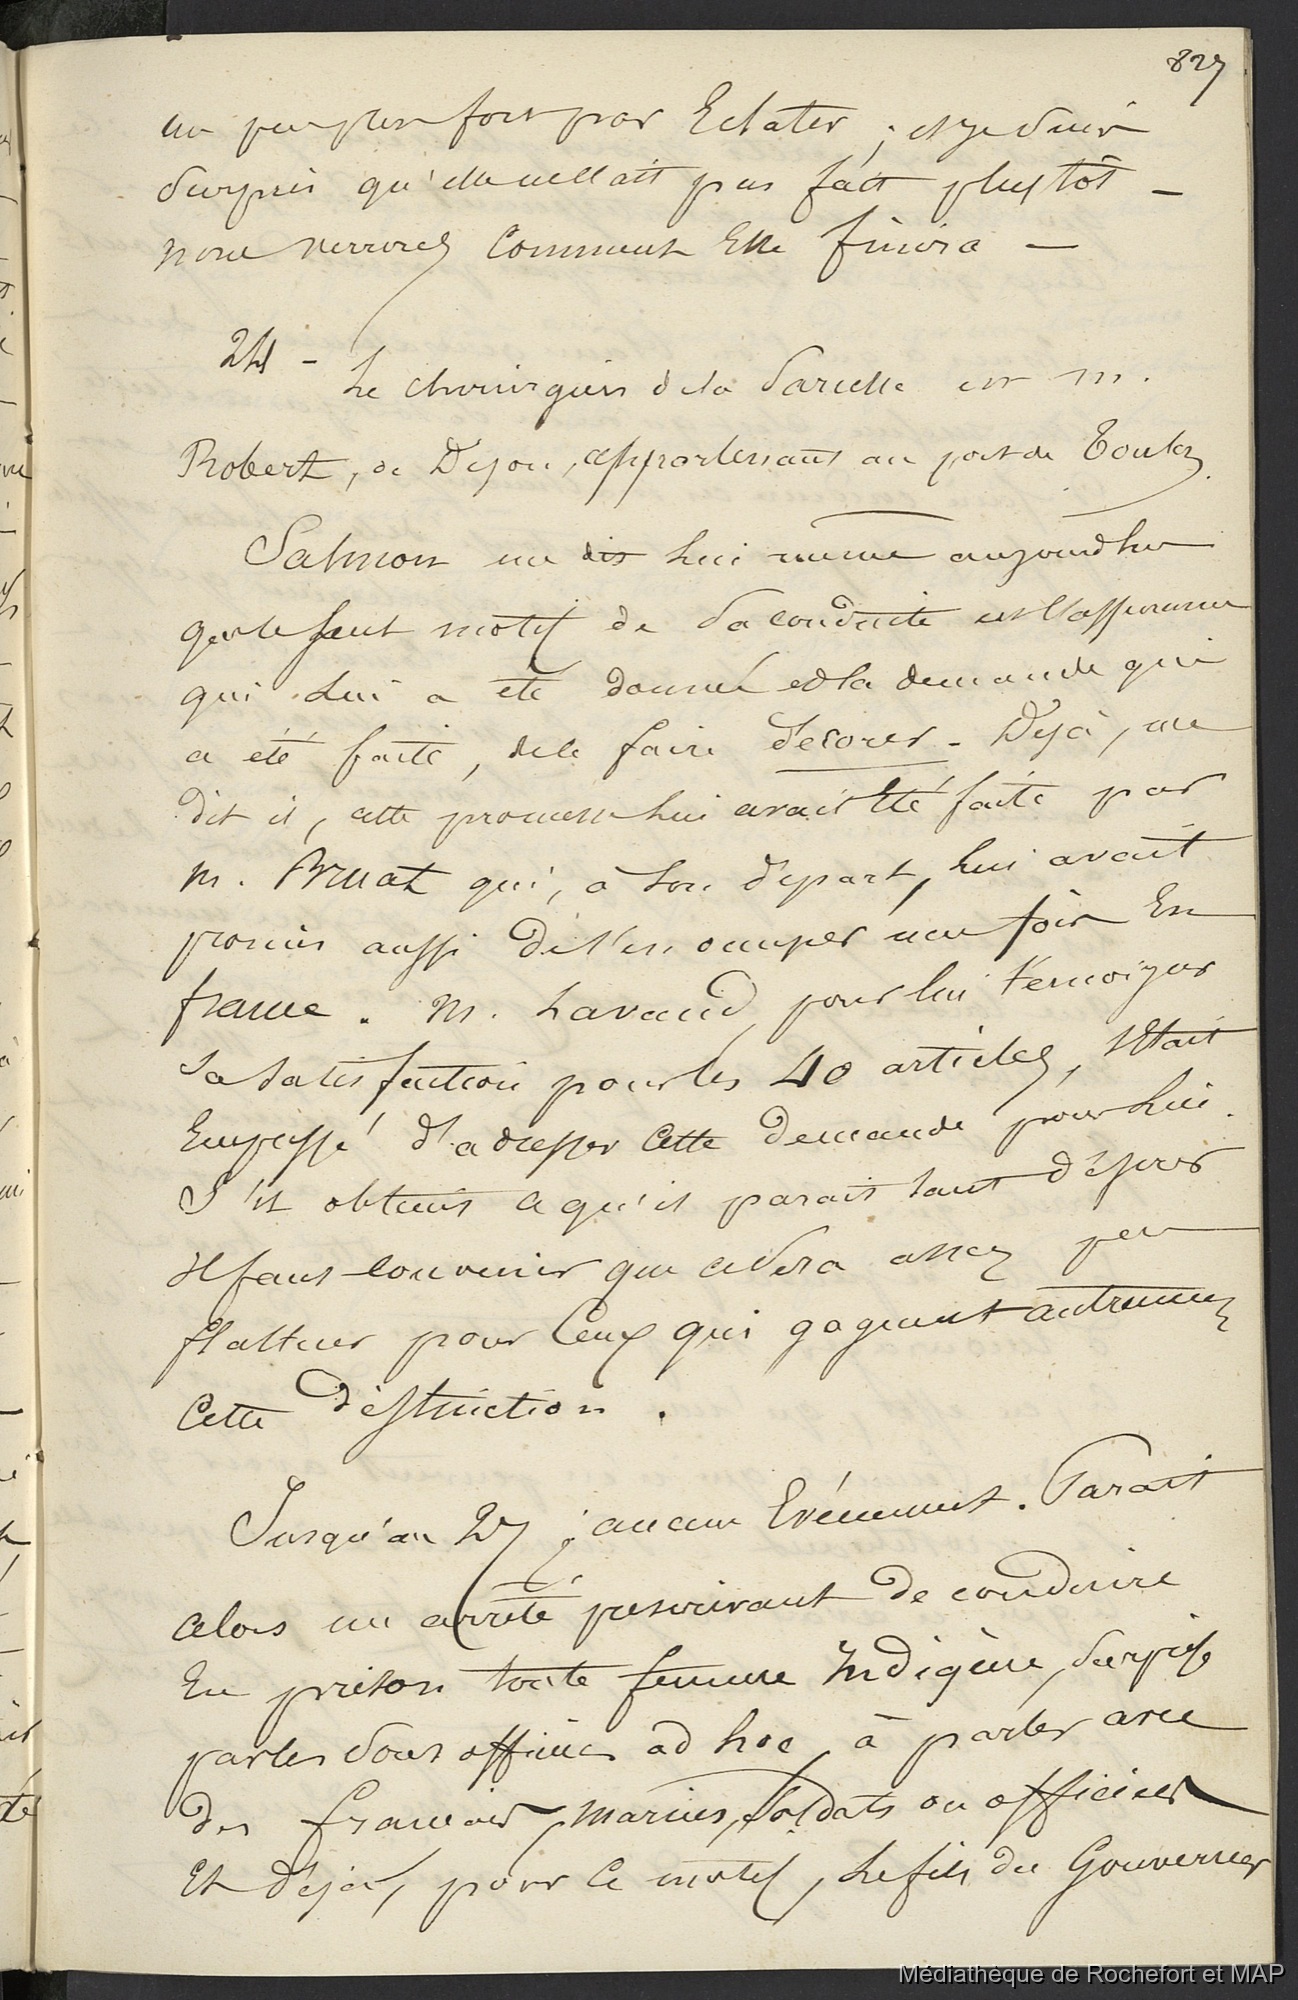 827
un peu plus fort par Eclater, et je suis
surpris qu'elle ne l'ait pas fait plustôt _
nous verrons comment Elle finira —
24 - Le chirurgien de la Sarcelle est m.
Robert, de Dijon, appartenant au port de Toulon.
Salmon me dis lui même aujourd'hui
que le seul motif de sa conduite est l'assurance
qui lui a été donné et la demande qui
a été faite, de le faire décorer - Déjà, me
dit il, cette promesse lui avait Eté faite par
m. Bruat qui, à son départ, lui avait
promis aussi de s'en occuper une fois En
france. m. Lavaud, pour lui témoigner
sa satisfaction pour les 40 articles, s'était
Empressé d'adresser cette demande pour lui.
S'il obtient ce qu'il parait tant désirer
il faut convenir que ce sera assez peu
flatteur pour ceux qui gagnent autrement
cette distinction.
Jusqu'au 27 aucun Evénement. Parait
alors un arrêté prescrivant de conduire
En prison toute femme Indigène, surprise
par les sous officiers ad hoc, à parler avec
des francais, marins, soldats ou officiers
Et déjà, pour ce motif, le fils du Gouverneur
Médiathèque de Rochefort et MAP